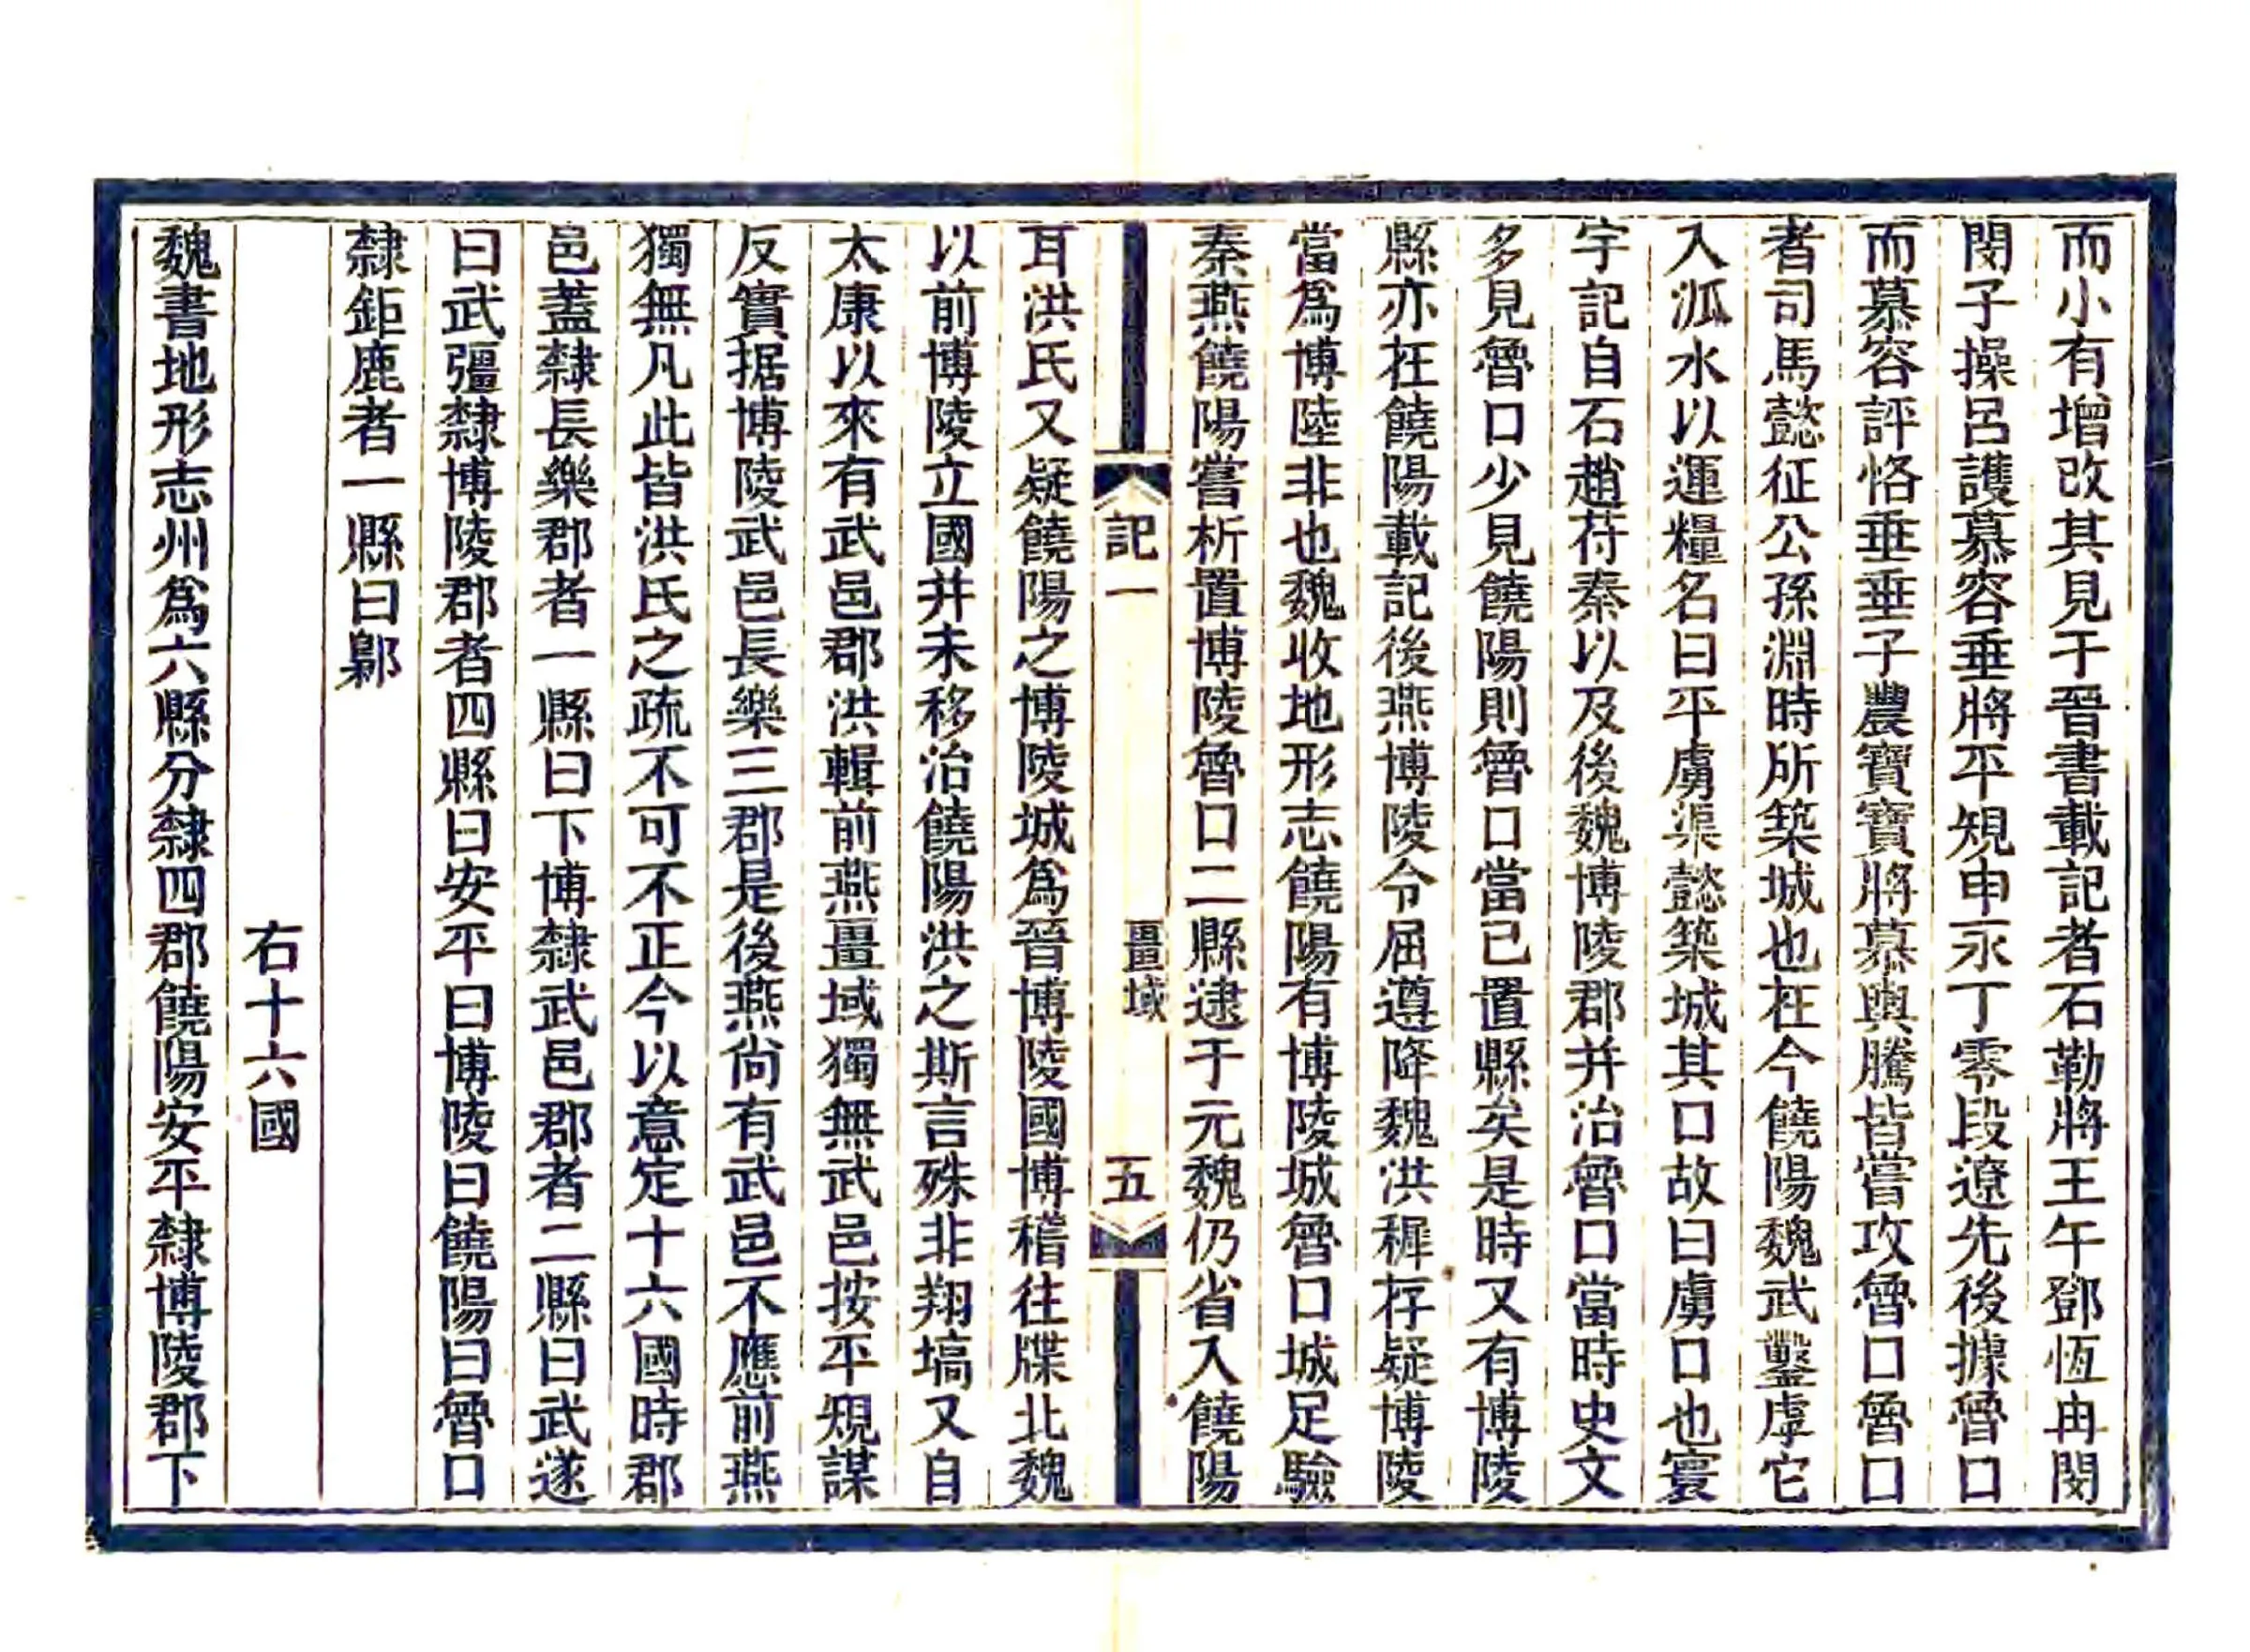 而小有增改其見于晉書載記者石勒將王午鄧恆冉閔
閔子操呂護慕容垂將平規申永丁零段遼先後據魯口
而慕容評恪垂垂子農寶寶將慕輿騰皆嘗攻魯口魯口
者司馬懿征公孫淵時所築城也在今饒陽魏武鑿虖它
入泒水以運糧名曰平虜渠懿築城其口故曰虜口也寰
宇記自石趙苻秦以及後魏博陵郡并治魯口當時史文
多見魯口少見饒陽則魯口當已置縣矣是時又有博陵
縣亦在饒陽載記後燕博陵令屈遵降魏洪穉存疑博陵
當爲博陸非也魏收地形志饒陽有博陵城魯口城足驗
秦燕饒陽嘗析置博陵魯口二縣逮于元魏仍省入饒陽
記一
畺域
五
耳洪氏又疑饒陽之博陵城爲晉博陵國博稽往牒北魏
以前博陵立國并未移治饒陽洪之斯言殊非翔塙又自
太康以來有武邑郡洪輯前燕畺域獨無武邑按平規謀
反實据博陵武邑長樂三郡是後燕尙有武邑不應前燕
獨無凡此皆洪氏之疏不可不正今以意定十六國時郡
邑蓋隸長樂郡者一縣曰下博隸武邑郡者二縣曰武遂
曰武彊隸博陵郡者四縣曰安平曰博陵曰饒陽曰魯口
隸鉅鹿者一縣曰鄡
右十六國
魏書地形志州爲六縣分隸四郡饒陽安平隸博陵郡下